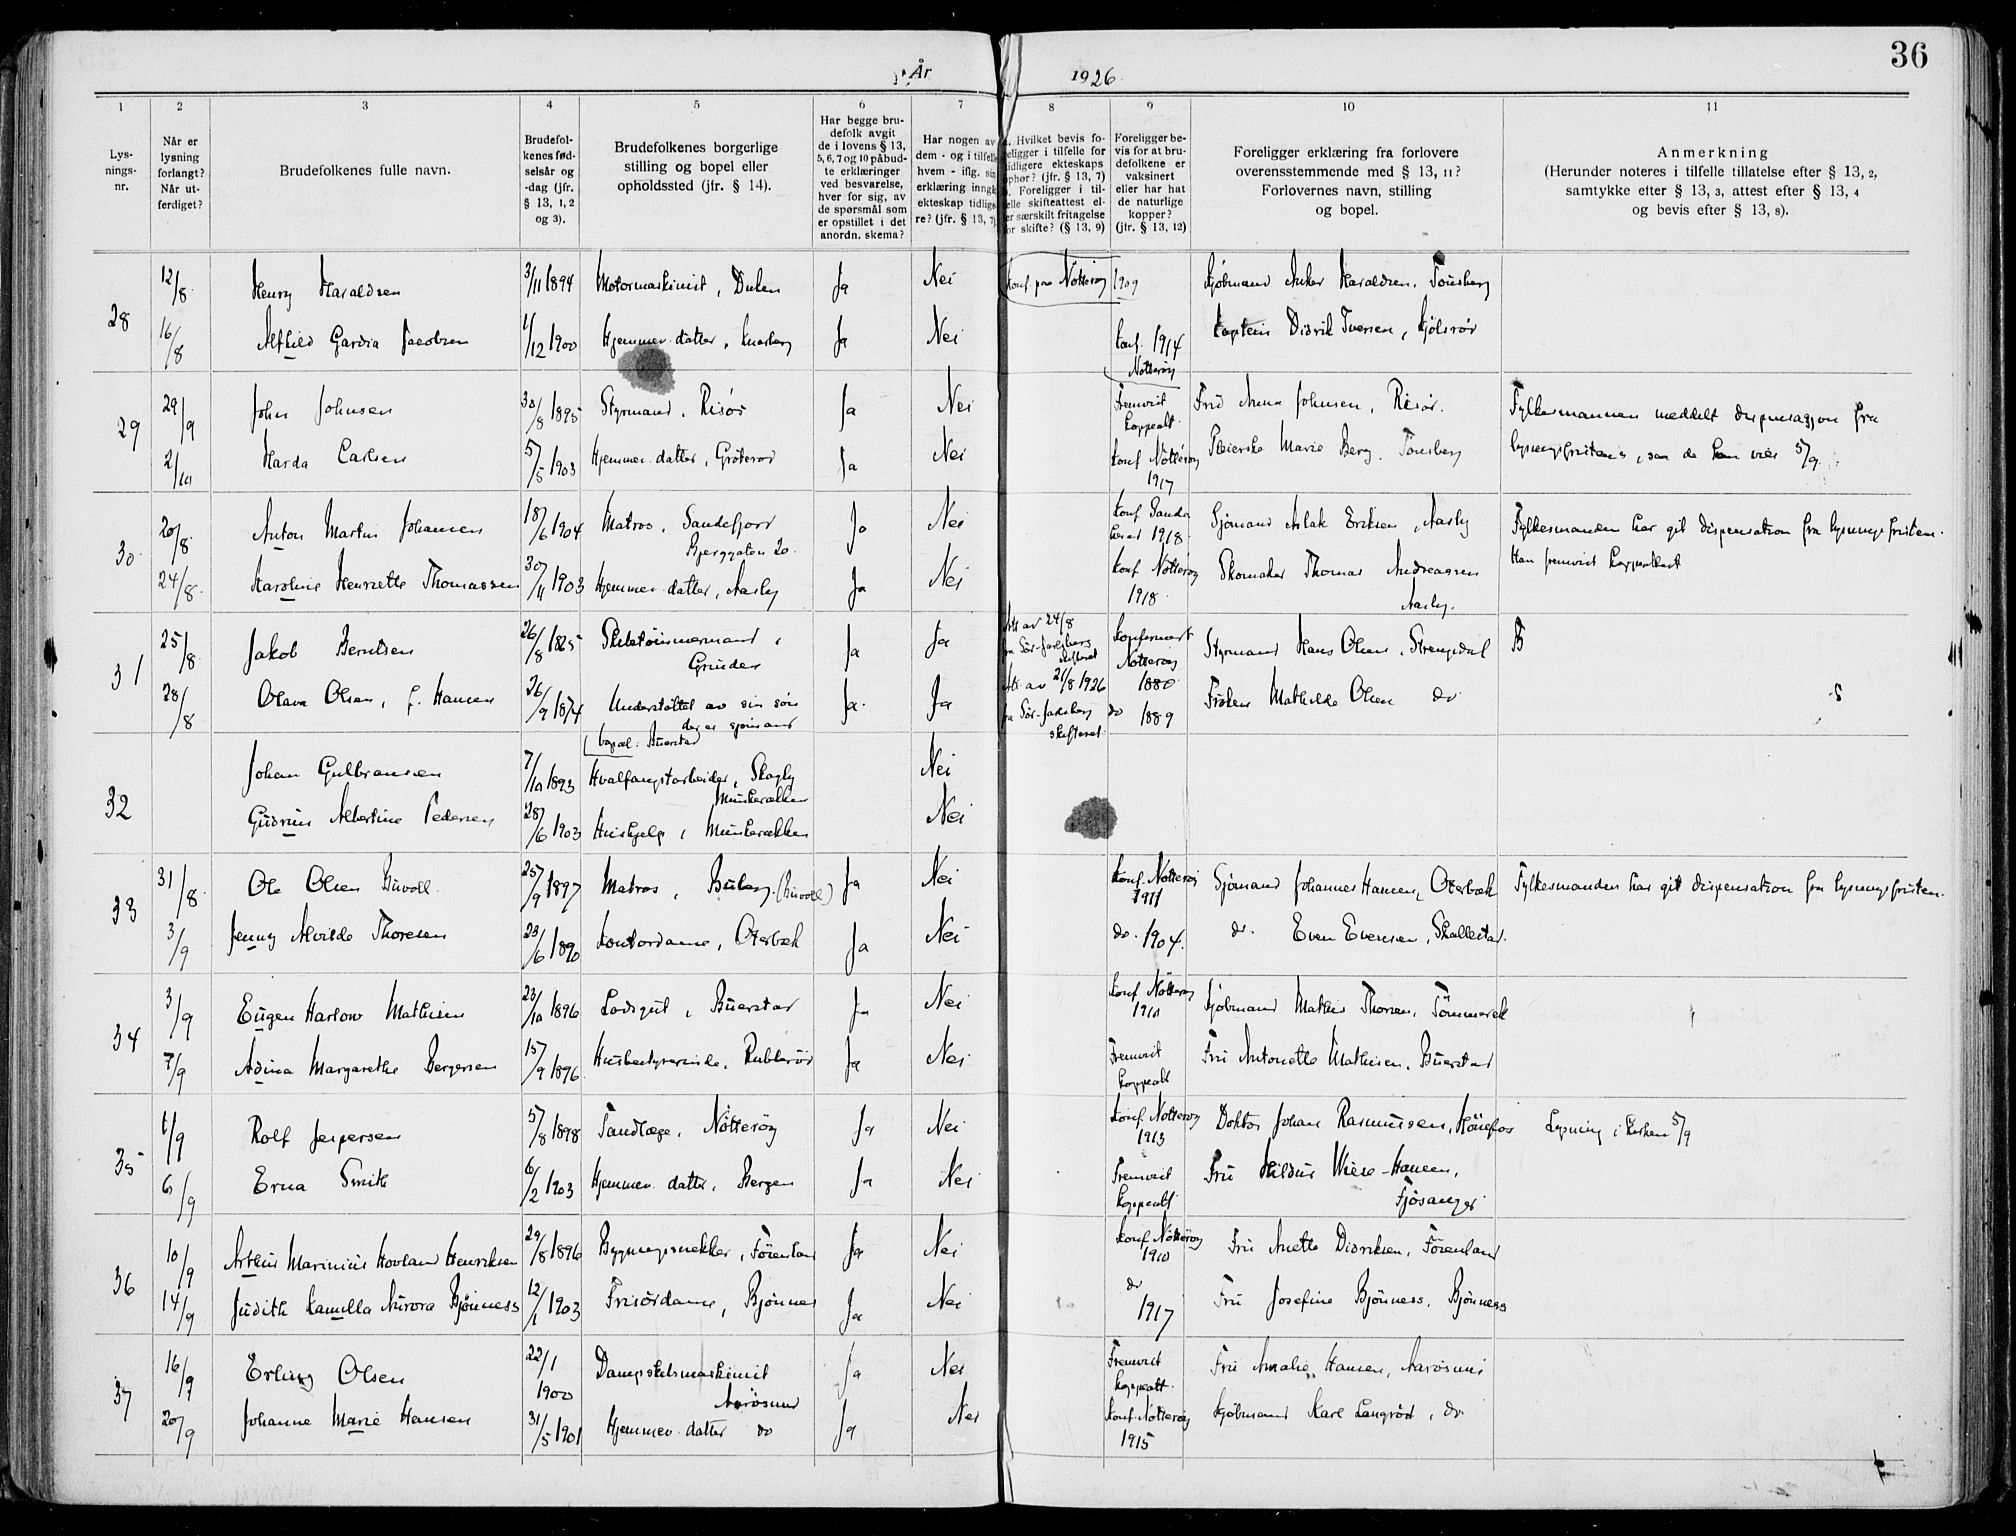 36
År 1926.
1 2 3 4 5 6 7 8 9 10 11
Lys-
nings-
nr.
Når er
lysning
forlangt?
Når ut-
ferdiget?
Brudefolkenes fulle navn.
Brudefol-
kenes fød-
selsår og
-dag (jfr.
§ 13, 1, 2
og 3).
Brudefolkenes borgerlige
stilling og bopel eller
opholdssted (jfr. § 14).
Har begge bru-
defolk avgit
de i lovens § 13,
5, 6, 7 og 10 påbud-
te erklæringer
ved besvarelse,
hver for sig, av
de spørsmål som
er opstillet i det
anordn. skema?
Har nogen av
dem - og i tilfelle
hvem - iflg. sin
erklæring inngå
ekteskap tidlige
re? (jfr. § 13, 7)
Hvilket bevis fo-
religger i tilfelle for
tidligere ekteskaps
ophør? (jfr. § 13, 7)
Foreligger i til-
felle skifteattest el-
ler særskilt fritagelse
for skifte? (§ 13, 9)
Foreligger be-
vis for at bru-
defolkene er
vaksinert
eller har hat
de naturlige
kopper?
(jfr. § 13, 12)
Foreligger erklæring fra forlovere
overensstemmende med § 13, 11?
Forlovernes navn, stilling
og bopel.
Anmerkning
(Herunder noteres i tilfelle tillatelse efter § 13, 2,
samtykke efter § 13, 3, attest efter § 13, 4
og bevis efter § 13, 8).
28
12/8 Henry Haraldsen 3/11 1894 Motormaskinist, Duken Ja Nei Konf. paa Nøtterøy 1909 Kjøbmand Anker Haraldsen, Tønsberg
16/8 Alfhild Gardia Jacobsen 1/12 1900 Hjemmev. datter, Ja Nei Konf. 1914 Kaptein Didrik Iversen, Kjølerød
Nøtterøy
29
29/9 John Johnsen 30/8 1895 Styrmand, Risør Ja Nei Fremvist Fru Anna Johnsen, Risør. Fylkesmannen meddelt dispensasjon fra
koppeatt.
2/10 Harda Carlsen 5/5 1903 Hjemmev. datter, Grøterød Ja Nei Konf. Nøtterøy Pleierske Marie Berg, Tønsberg lysningsfristen, saa de kan vies 5/9.
1917
30
20/8 Anton Martin Johansen 18/6 1904 Matros, Sandefjord Ja Nei Konf. Sande- Sjømand Aslak Eriksen, Aasly Fylkesmanden har git dispensation fra lysningsfristen.
Bjerggaten 20. herad 1918.
24/8 Karoline Henriette Thomassen 30/11 1903 Hjemmev. datter, Aasly Ja Nei Konf. Nøtterøy Skomaker Thomas Andreassen Han fremvist koppeattest
1918. Aasly.
31
25/8 Jakob Berntsen 26/8 1865 Skibstømmermand, Ja Ja Att. av 24/8 Konfirmert Styrmand Hans Olsen, Strengsdal
Grinder fra Sør-Jarlsberg Nøtterøy
skifteret 1880.
28/8 Olava Olsen, f. Hansen 26/9 1874 Understøttet av sin søn Ja. Ja Att. av 21/8 1926 do 1889 Frøken Mathilde Olsen do
der er sjømand fra Sør-Jarlsberg
(bopæl: Buerstad skifteret.
32
Johan Gulbransen 7/10 1893 Hvalfangstarbeider, Skagly Nei
Munkerækken
Gudrun Albertine Pedersen 28/6 1903 Hushjelp, Munkerækken Nei
33
31/8 Ole Olsen Buvoll. 25/9 1897 Matros, Buberg. (Buvoll) Ja Nei Konf. Nøtterøy Sjømand Johannes Hansen, Oterbæk Fylkesmanden har git dispensation fra lysningsfristen.
1911
3/9 Jenny Alvilde Thoresen 23/6 1890 Kontordame, Oterbæk Ja Nei do. 1904. do. Even Evensen, Skallestad.
34
3/9 Eugen Harlow Mathisen 23/10 1896 Losgut, Buerstad Ja Nei Konf. Nøtterøy Kjøbmand Mathis Thorsen,
1910
7/9 Adina Margarethe Bergersen 15/9 1896 Husbestyrerinde, Rubberød Ja Nei Fremvist Fru Antonette Mathisen, Buerstad
koppeatt
35
1/9 Rolf Jespersen 5/8 1898 Tandlæge, Nøtterøy Ja Nei Konf. Nøtterøy Doktor Johan Rasmussen, Hønefos Lysning i kirken 5/9
1913
6/9 Erna Smith 6/2 1903 Hjemmev. datter, Bergen Ja Nei Fremvist Fru Hildur Wiese-Hansen,
koppeatt. Fjøsanger
36
10/9 Arthur Marinius Hovland Henriksen 29/8 1896 Bygningssnekker, Førenland Ja Nei Konf. Nøtterøy Fru Anette Didriksen, Førenland
1910
14/9 Judith Kamilla Aurora Bjønness 12/1 1903 Frisørdame, Bjønnes Ja Nei do 1917 Fru Josefine Bjønness, Bjønness
37
16/9 Erling Olsen 22/1 1900 Dampskibsmaskinist Ja Nei Fremvist Fru Amalie Hansen, Aarøsund
Aarøsund koppeatt.
20/9 Johanne Marie Hansen 31/5 1901 Hjemmev. datter do Ja Nei Konf. Nøtterøy Kjøbmand Karl Langrød, do
1915